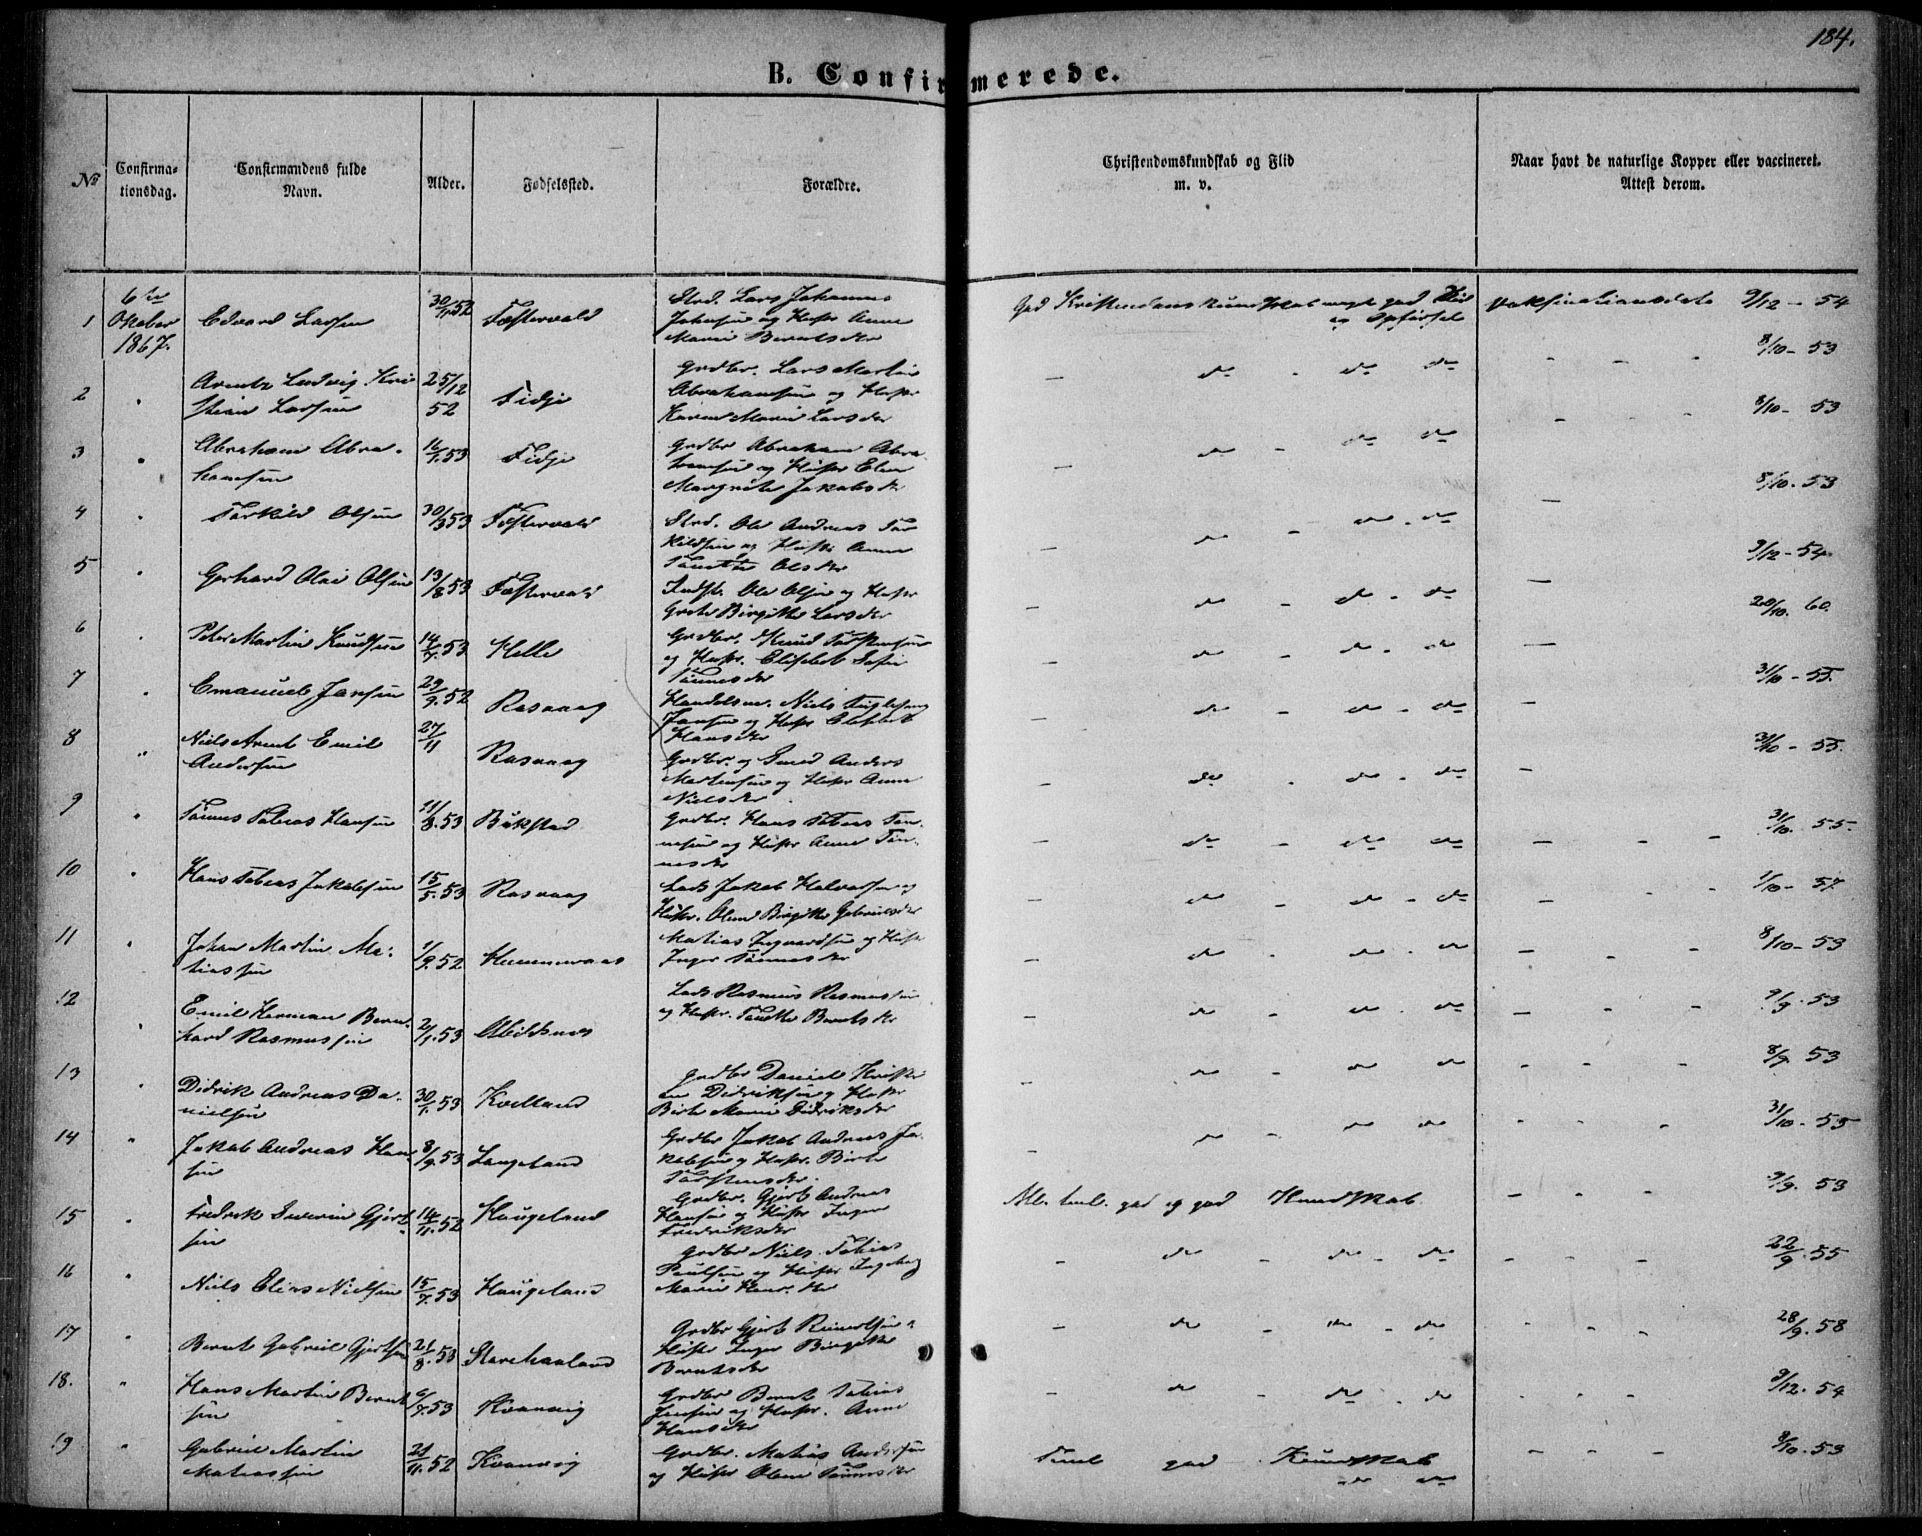 184.
B. Confirmerede.
№
Confirma-
tionsdag.
Confirmandens fulde
Navn.
Alder.
Fødselssted.
Forældre.
Christendomskundskab og Flid
m. v.
Naar havt de naturlige Kopper eller vaccineret.
Attest derom.
1 6te Oktober 1867. Edvard Larsen 52 Fæstervold
Strd. Lars Johannes
Johnsen og Hustr Anne
Marie Berntsdtr
God Kristendomskundskab meget god Flid
og Opførsel
Vaksinationsdato 9/12 - 54
2 " Arnt Ludvig Kri
stian Larsen 25/12 52 Fidje
Grdbr. Lars Martin
Abrahamsen og Hustr
Karen Marie Larsdtr
do - do do 8/10 - 53
3 " Abraham Abra-
hamsen 16/1. 53 Fidje
Grdbr Abraham Abra
hamsen og Hustr Elen
Margrete Jakobsdtr
do - do do 8/10 - 53
4 " Torkild Olsen 30/3 53 Fæstervold
Strd. Ole Andreas Tor
kildsen og Hustr Anne
Tonette Olsdtr
do - do - do 8/10. 53
5 " Gerhard Olai Olsen 13/8 53 Fæstervold
Indst. Ole Olsen og Hustr
Grete Birgitte Larsdtr
do - do - do 9/12 - 54
6 " Peter Martin Knudsen 14/7. 53 Helle
Grdbr. Knud
og Hustr. Elisabet Sofie
Tønnesdtr
do - do - do 20/10. 60.
7 " Emanuel Jansen 29/9. 52 Rasvaag
Handelsm. Niels
Jansen og Hustr
Hansdtr
do - do - do 31/10 - 55.
8 " Niels Arnt Emil
Andersen 27/11 Rasvaag
Grdbr. og Smed Anders
Martinsen og Hustr Anne
Nielsdtr
do - do - do 31/10 - 55.
9 " Tønnes Tobias Hansen 11/8. 53 Bukstad
Grdbr. Hans Tobias Tøn-
nesen og Hustr Anne Tøn-
nesdtr
do - do do 31/10. 55.
10 " Hans Tobias Jakobsen 15/5. 53 Rasvaag
Lods Jakob Halvorsen og
Hustr. Olene Birgitte Gabrielsdtr
do - do - do 1/10 - 57.
11 " Johan Martin Ma-
tiassen 1/9. 52
Matias Ingvardsen og Hustr
Inger Tønnesdtr
do - do - do 8/10 - 53
12 " Emil Herman Bern-
hard Rasmussen 2/1. 53 Abildsnes
Lods Rasmus Rasmussen
og Hustr. Tonette Berntsdtr
do - do - do 9/9. 53
13 " Didrik Andreas Da-
nielsen 30/1. 53 Kvelland
Grdbr Daniel Kristi
an Didriksen og Hustr
Birte Marie Didriksdtr
do - do do 8/9. 53
14 " Jakob Andreas Han
sen 8/9. 53 Langeland
Grdbr Jakob Andreas Ja-
kobsen og Hustr. Birte
Torstensdtr.
do - do do 31/10 - 55
15 " Fredrik Severin Gjert
sen 14/11. 52 Haugeland
Grdbr. Gjert Andreas
Hansen og Hustr Inger
Fredriksdtr
god og god Kundskab 9/9. 53
16 " Niels Elias Nielsen 15/7. 53 Haugeland
Grdbr Niels Tobias
Paulsen og Hustr Ingeborg
Marie
do - do - do 22/9 - 55
17 " Bernt Gabriel Gjertsen 21/8. 53 Storehaaland
Grdbr Gjert Reinertsen og
Hustr Inger Birgitte
Berntsdtr
do - do - do 28/9. 58
18. " Hans Martin Bernt
sen 53 Kvanvig
Grdbr Bernt Tobias
Jensen og Hustr. Anne
Hansdtr
do - do - do 9/12. 54
19 " Gabriel Martin
Matiassen 21/11. 52 Kvanvig
Grdbr. Matias Andersen
og Hustr Olene Tønnesdtr
god Kundskab
do do
8/10. 53